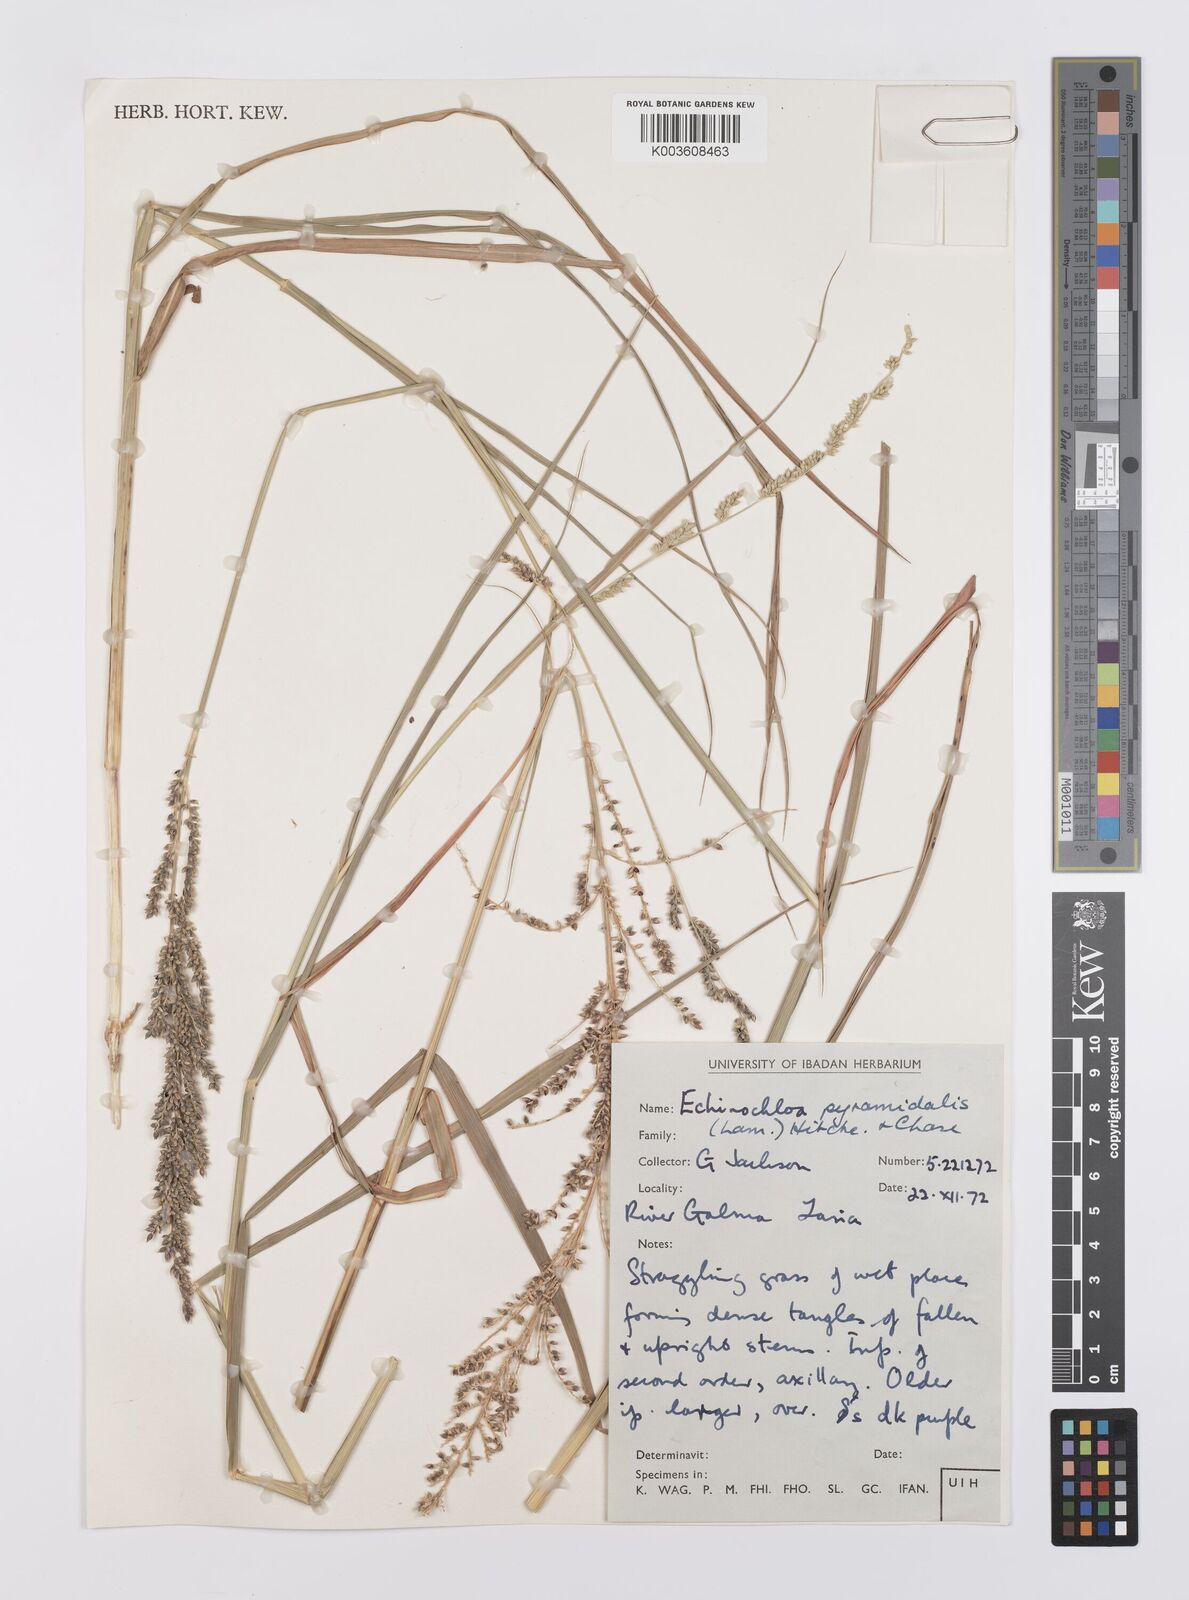 HERB. HORT. KEW.
ROYAL BOTANIC GARDENS KEW
K003608463
UNIVERSITY OF IBADAN HERBARIUM
Name: Echinochloa pyramidalis
(Lam.) Hitchc. & Chase
Family:
Collector: G Jackson Number: 5.221272
Locality: Date: 22.XII.72
River Galma Zaria
Notes:
Straggling grass of wet places
forming dense tangles of fallen
& upright stems. Inf. of
second order, axillary. Older
if. larger, over. S's dk purple
Determinavit: Date:
Specimens in:
K. WAG. P. M. FHI. FHO. SL. GC. IFAN.
UIH
inches
centimetres
Density
Don Williams
M001011
Royal Botanic Gardens
Kew
copyright reserved
0 1 2 3 4 5 6 7 8 9 10
cm